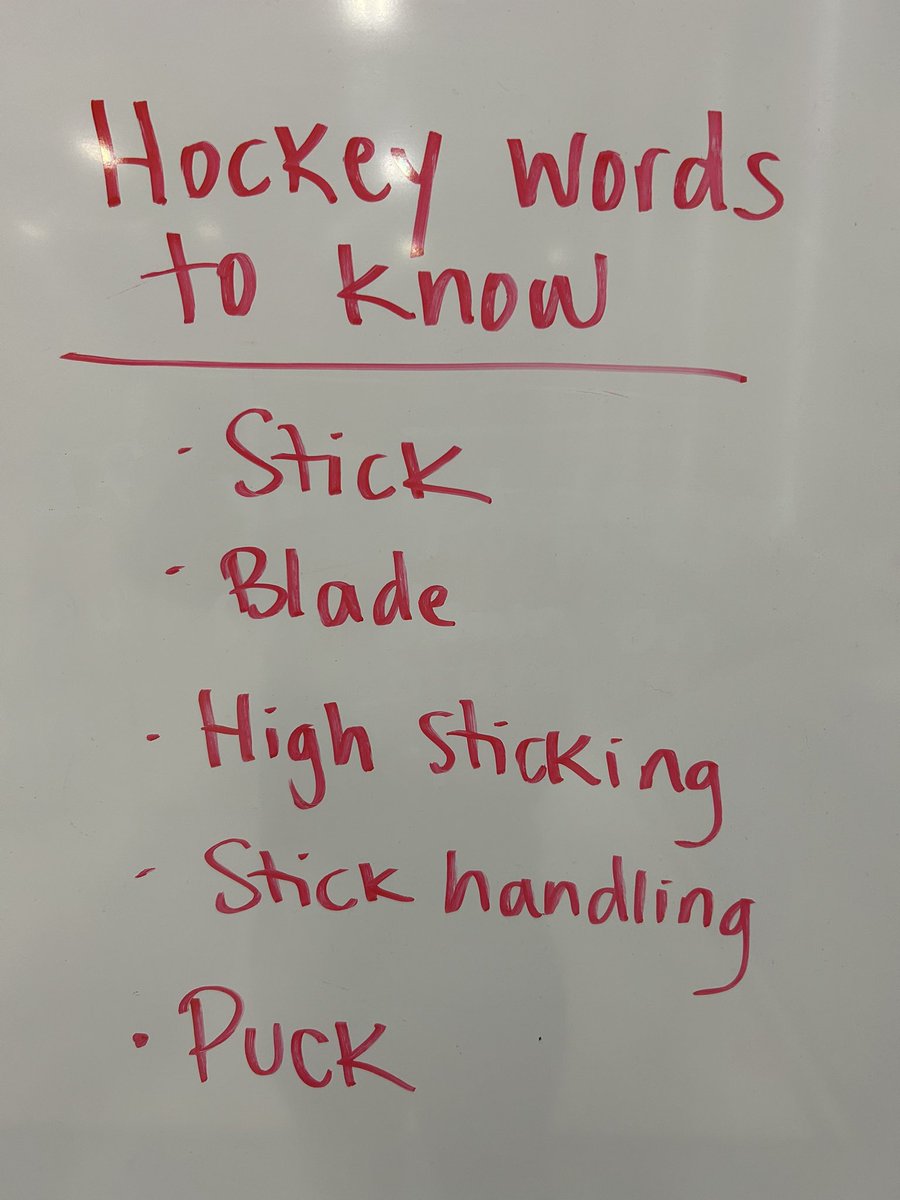 Hockey words
to know
· Stick
· Blade
· High sticking
· Stick handling
· Puck